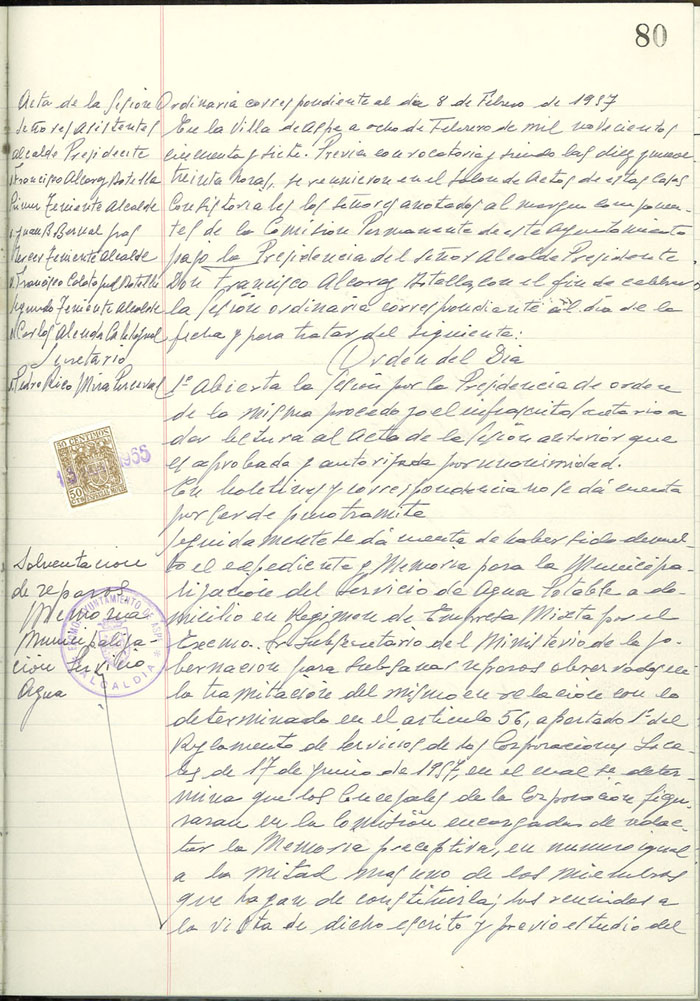 80
Acta de la Sesion Ordinaria correspondiente al dia 8 de Febrero de 1957
Señores asistentes
Alcalde Presidente
D Francisco Alcaraz Botella
Primer Teniente Alcalde
D Juan B. Bernal
Tercer Teniente Alcalde
D. Francisco Calatayud Botella
Segundo Teniente Alcalde
D Carlos
Secretario
D Pedro Rico Mira Perceval
En la Villa de Aspe a ocho de Febrero de mil novecientos
cincuenta y siete. Previa convocatoria y siendo las diez y nueve
treinta horas, se reunieron en el Salon de Actos de estas Casas
Consistoriales los señores anotados al margen componen-
tes de la Comision Permanente de este Ayuntamiento
bajo la Presidencia del Señor Alcalde Presidente
Don Francisco Alcaraz Botella, con el fin de celebrar
la Sesion ordinaria correspondiente al dia de la
fecha y para tratar del siguiente:
Orden del Dia
1º Abierta la Sesion por la Presidencia de orden
de la misma procedo yo el infrascrito Secretario a
dar lectura al Acta de la Sesion anterior que
es aprobada y autorizada por unanimidad.
En boletines y correspondencia no se dá cuenta
por ser de puro tramite
50 CENTIMOS
50
1965
Solventacion
de reparos
Memoria
Municipaliza-
cion Servicio
Agua
EXCMO. AYUNTAMIENTO DE ASPE
ALCALDIA
Seguidamente se dá cuenta de haber sido devuel-
to el expediente y Memoria para la Municipa-
lizacion del Servicio de Agua Potable a do-
micilio en Regimen de Empresa Mixta por el
Excmo. Sr. Subsecretario del Ministerio de la Go-
bernacion para subsanar reparos observados en
la tramitacion del mismo en relacion con lo
determinado en el articulo 56, apartado 1º del
Reglamento de Servicios de las Corporaciones Loca-
les de 17 de Junio de 1957, en el cual se deter-
mina que los Concejales de la Corporación figu-
raran en la Comisión encargada de redac-
tar la Memoria preceptiva, en numero igual
a la mitad mas uno de los miembros
que hayan de constituirla; los reunidos a
la vista de dicho escrito y previo estudio del